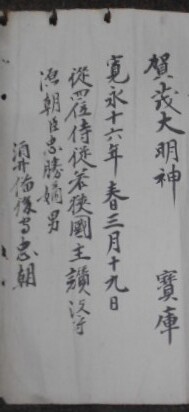 賀茂大明神　寶庫
寛永十六年 春三月十九日
從四位侍從若狹國主讃岐守
源朝臣忠勝嫡男
酒井備後守忠朝